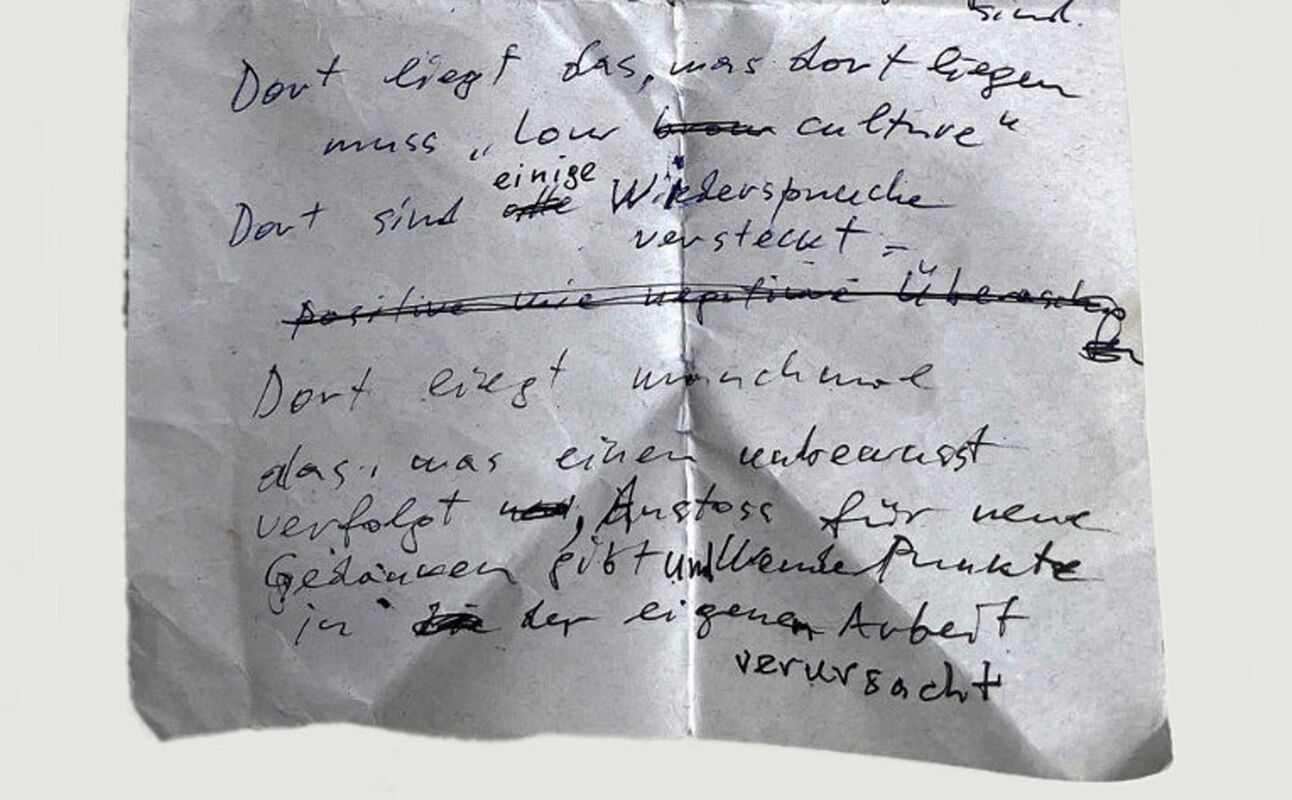 sind.
Dort liegt das, was dort liegen
muss „low culture"
einige
Dort sind Wiedersprueche
versteckt =
positive wie negative Überasch
Dort liegt manchmal
das, was einen unbewusst
verfolgt, Anstoss für neue
Gedanken gibt und Wende Punkte
in der eigenen Arbeit
verursacht